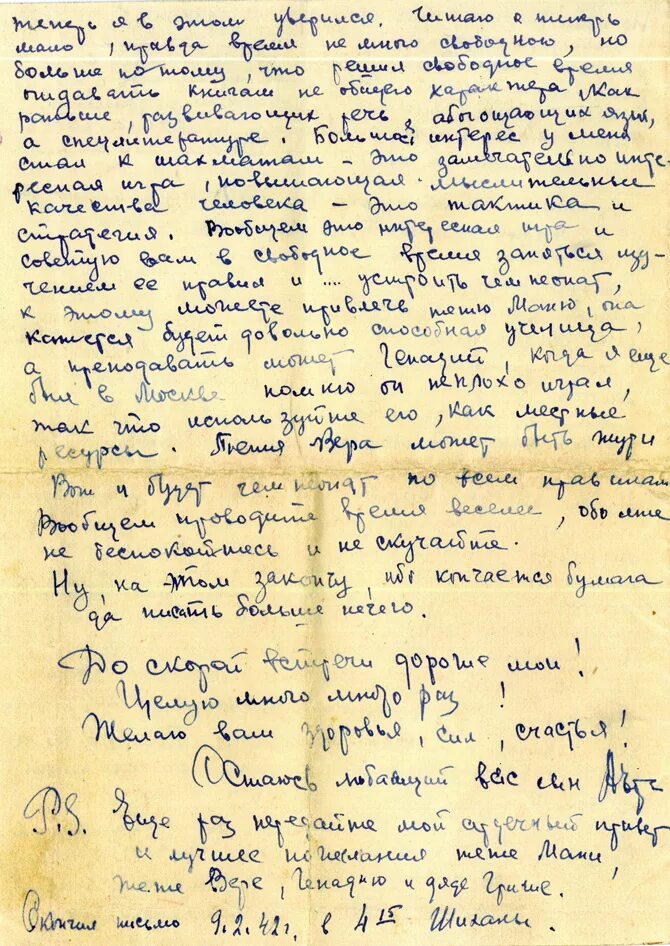 теперь я в этом уверился. Читаю я теперь
мало, правда время не много свободною, но
больше потому, что решил свободное время
отдавать книгам не общего характера, как
раньше, развивающих речь, обогощающих язык,
а спецлитературе. Большой интерес у меня
стал к шахматам – это замечательно инте-
ресная игра, повышающая мыслительные
качества человека – это тактика и
стратегия. Вообщем это интересная игра и
советую вам в свободное время заняться изу-
чением ее правил и .... устроить чемпеонат,
к этому можете привлечь тетю Маню, она
кажется будет довольно способная ученица,
а преподавать может Генадий, когда я еще
был в Москве помню он неплохо играл,
так что используйте его, как местные
ресурсы. Тетя Вера может быть жури
Вот и будет чемпеонат по всем правилам
Вообщем проводите время веселее, обо мне
не беспокойтесь и не скучайте.
Ну, на этом закончу, ибо кончается бумага
да писать больше нечего.
До скорай встречи дороже мои!
Целую много много раз!
Желаю вам здоровья, сил, счастья!
Остаюсь любающий вас сын
P.S. Еще раз передайте мой сердечный привет
и лучшее пожелания тете Мани,
тете Вере, Генадию и дяде Грише.
Окончил письмо 9.2.42г. в 4 15 Шиханы.